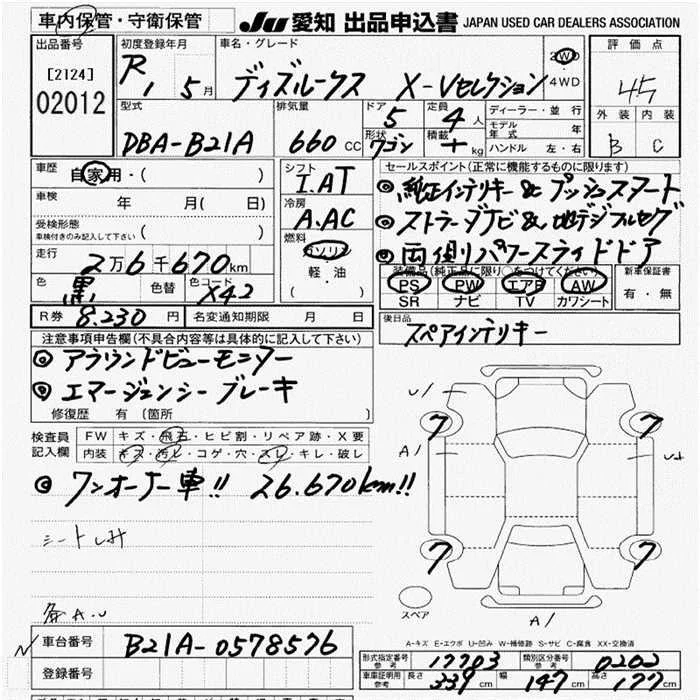 車内保管・守衛保管 JU 愛知 出品申込書 JAPAN USED CAR DEALERS ASSOCIATION
出品番号 初度登録年月 車名・グレード 評価点
[2124] R1 5月 ディズルークス X-Vセレクション 2WD 4WD 45
02012 型式 排気量 ドア 定員 ディーラー・並行 外装 内装
DBA-B21A 660 CC 5 4人 モデル年式 年 B C
形状 ワゴン 積載 kg ハンドル 左・右
車歴 自家用・( ) シフト I.AT セールスポイント(正常に機能するものに限ります)
車検 年 月( 日) 冷房 A.AC ◎ 純正インテリキー & プッシュスタート
受検形態 ◎ ストラーダナビ &、地デジフルセグ
車検付きのみ記入して下さい ( ) 燃料 ガソリン ◎ 両側パワースライドドア
走行 2万6千670km 軽・油 装備品(純正品に限り○をつけてください) 新車保証書
色 黒 色替 色コード X42 ( ) PS PW エアB AW 有・無
SR ナビ TV カワシート
R券 8.230 円 名変通知期限 月 日 後日品
スペアインテリキー
注意事項申告欄(不具合内容等は具体的に記入して下さい)
◎ アラウンドビューモニター
◎ エマージェンシーブレーキ
修復歴 有 (箇所 )
検査員 FW キズ・飛石・ヒビ割・リペア跡・X要
記入欄 内装 キズ・汚レ・コゲ・穴・スレ・キレ・破レ
◎ ワンオーナー車!! 26.670km!!
シートしみ
U1
7 7
A1
7 7
スペア A1
各A.U
A-キズ E-エクボ U-凹み W-補修跡 S-サビ C-腐食 XX-交換済
車台番号 B21A-0578576 型式指定番号 参考 17703 類別区分番号 参考 0202
登録番号 車庫証明用 参考 長さ 339 cm 幅 147 cm 高さ 177 cm